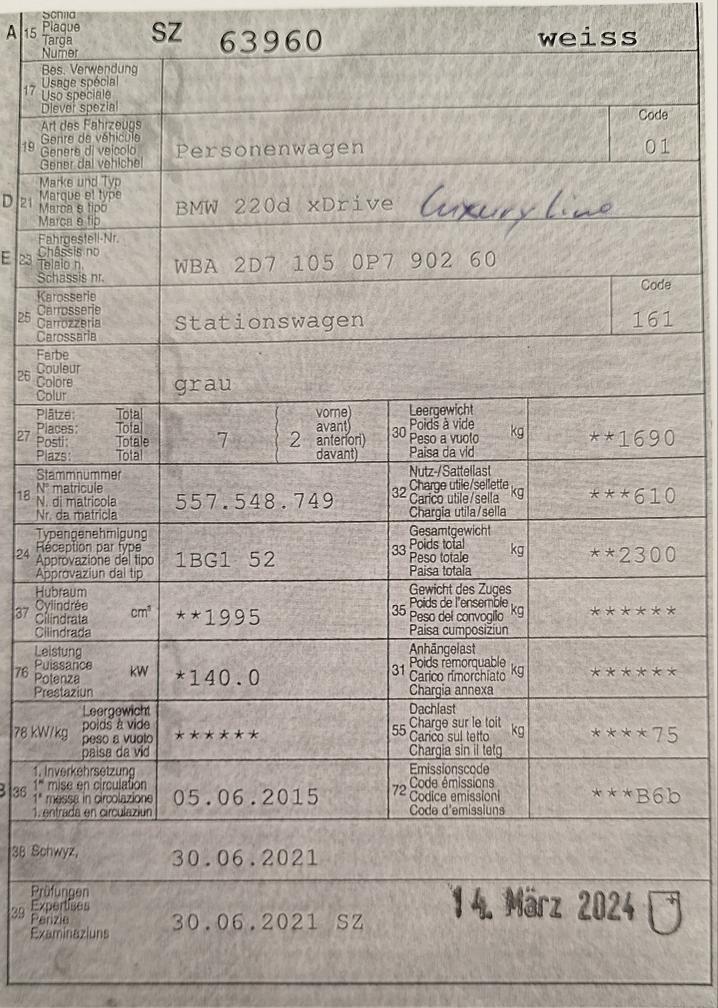 A 15 Schild SZ 63960 weiss
Plaque
Targa
Numer
17 Bes. Verwendung
Usage spécial
Uso speciale
Diever spezial
19 Art des Fahrzeugs Code
Genre de véhicule Personenwagen 01
Genere di veicolo
Gener dal vehichel
D 21 Marke und Typ
Marque et type BMW 220d xDrive Luxury Line
Marca e tipo
Marca e tip
E 23 Fahrgestell-Nr.
Châssis no WBA 2D7 105 0P7 902 60
Telaio n.
Schassis nr.
25 Karosserie Code
Carrosserie Stationswagen 161
Carrozzeria
Carossaria
26 Farbe
Couleur grau
Colore
Colur
27 Plätze: Total 7 ( 2 vorne)
Places: Total avant)
Posti: Totale anteriori)
Plazs: Total davant)
30 Leergewicht kg **1690
Poids à vide
Peso a vuoto
Paisa da vid
18 Stammnummer 557.548.749
N° matricule
N. di matricola
Nr. da matricla
32 Nutz-/Sattellast kg ***610
Charge utile/sellette
Carico utile/sella
Chargia utila/sella
24 Typengenehmigung 1BG1 52
Réception par type
Approvazione del tipo
Approvaziun dal tip
33 Gesamtgewicht kg **2300
Poids total
Peso totale
Paisa totala
37 Hubraum cm³ **1995
Cylindrée
Cilindrata
Cilindrada
35 Gewicht des Zuges kg ******
Poids de l'ensemble
Peso del convoglio
Paisa cumposiziun
76 Leistung kW *140.0
Puissance
Potenza
Prestaziun
31 Anhängelast kg ******
Poids remorquable
Carico rimorchiato
Chargia annexa
78 kW/kg Leergewicht ******
poids à vide
peso a vuoto
paisa da vid
55 Dachlast kg ****75
Charge sur le toit
Carico sul tetto
Chargia sin il tetg
B 36 1. Inverkehrsetzung 05.06.2015
1re mise en circulation
1a messa in circolazione
1. entrada en circulaziun
72 Emissionscode ***B6b
Code émissions
Codice emissioni
Code d'emissiuns
38 Schwyz, 30.06.2021
39 Prüfungen 30.06.2021 SZ 14. März 2024
Expertises
Perizie
Examinaziuns